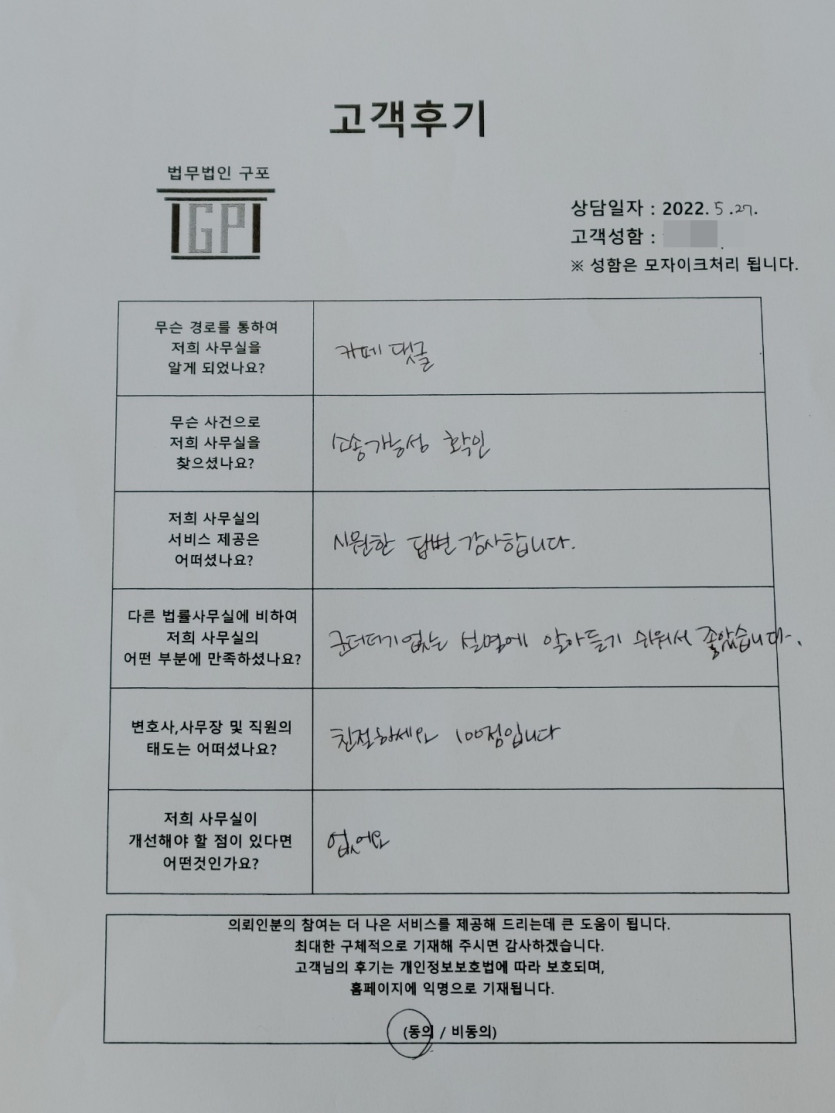 고객후기
법무법인 구포
GP
상담일자 : 2022. 5 .27.
고객성함 :
※ 성함은 모자이크처리 됩니다.
무슨 경로를 통하여
저희 사무실을
알게 되었나요?
카페 댓글
무슨 사건으로
저희 사무실을
찾으셨나요?
소송가능성 확인
저희 사무실의
서비스 제공은
어떠셨나요?
시원한 답변 감사합니다.
다른 법률사무실에 비하여
저희 사무실의
어떤 부분에 만족하셨나요?
군더더기없는 설명에 알아듣기 쉬워서 좋았습니다.
변호사,사무장 및 직원의
태도는 어떠셨나요?
친절하세요 100점입니다
저희 사무실이
개선해야 할 점이 있다면
어떤것인가요?
없어요
의뢰인분의 참여는 더 나은 서비스를 제공해 드리는데 큰 도움이 됩니다.
최대한 구체적으로 기재해 주시면 감사하겠습니다.
고객님의 후기는 개인정보보호법에 따라 보호되며,
홈페이지에 익명으로 기재됩니다.
(동의 / 비동의)